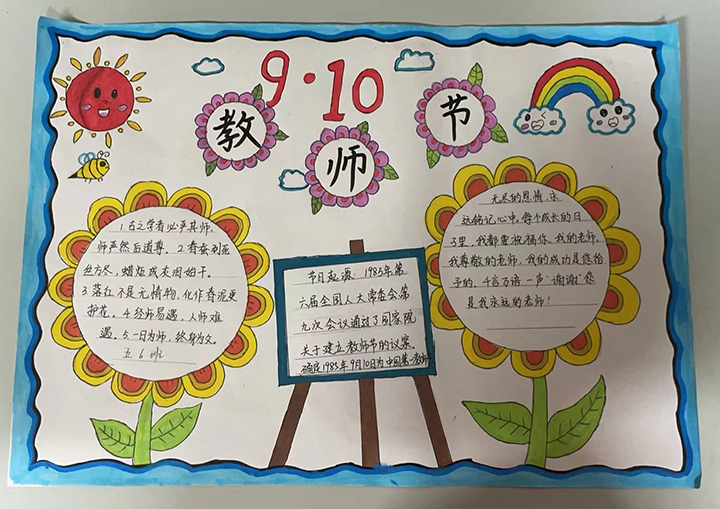 9·10
教师节
1.古之学者必严其师,
师严然后道尊. 2.春蚕到死
丝方尽,蜡炬成灰泪始干.
3.落红不是无情物,化作春泥更
护花. 4.经师易遇,人师难
遇. 5.一日为师,终身为父.
五6班
节日起源:1985年第
六届全国人大常委会第
九次会议通过了国家院
关于建立教师节的议案
确定1985年9月10日为中国第一教师
无尽的恩情,永
远铭记心中,每个成长的日
子里,我都要祝福你,我的老师,
我尊敬的老师,我的成功是您给
予的,千言万语一声"谢谢"您
是我永远的老师!